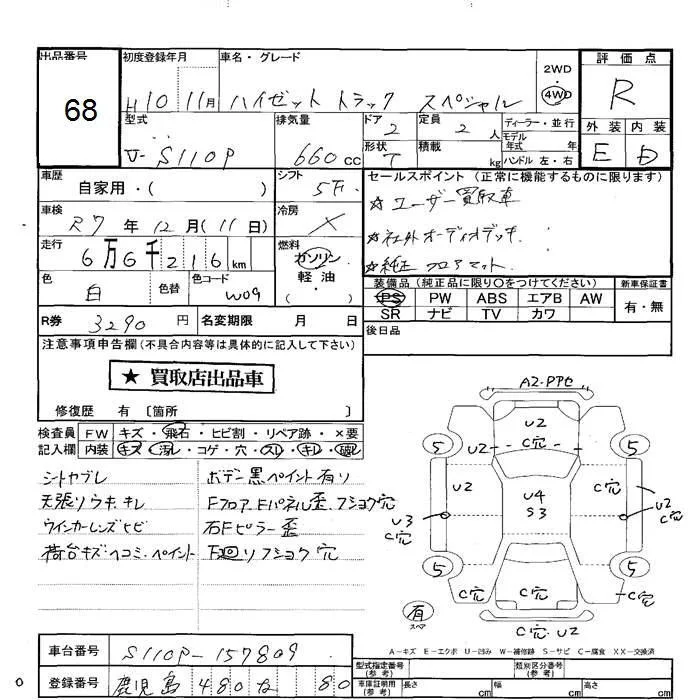 出品番号 68
初度登録年月 H10 11月
車名・グレード ハイゼット トラック スペシャル
2WD ・ 4WD
評価点 R
型式 V- S110P
排気量 660 cc
ドア 2
形状 T
定員 2 人
積載 kg
ディーラー・並行
モデル年式 年式
ハンドル 左・右
外装 E 内装 D
車歴 自家用・( )
シフト 5F
セールスポイント (正常に機能するものに限ります)
☆ ユーザー買取車
☆ 社外オーディオデッキ
☆ 純正フロアマット
車検 R7 年 12 月 ( 11 日)
冷房 ×
走行 6万6千216 km
燃料 ガソリン 軽油 ・
色 白 色替 色コード W09
装備品 (純正品に限り○をつけてください)
新車保証書 有・無
PS PW ABS エアB AW
SR ナビ TV カワ
R券 3290 円
名変期限 月 日
後日品
注意事項申告欄 (不具合内容等は具体的に記入して下さい)
★ 買取店出品車
修復歴 有 〔箇所 〕
検査員記入欄
FW キズ・飛石・ヒビ割・リペア跡・×要
内装 キズ・汚レ・コゲ・穴・スレ・キレ・破レ
シートヤブレ
天張リウキ、キレ
ウインカーレンズヒビ
荷台キズヘコミ、ペイント
ボデー黒ペイント有リ
Fフロア、Fパネル歪、フショク穴
右Fピラー歪
下廻リフショク穴
A2・PPセ
U2
C穴
U2
C穴
5
5
U2
C穴
U4
S3
U3
C穴
U2
C穴
5
5
C穴
C穴
C穴
C穴 U2
有
スペア
A-キズ E-エクボ U-凹み W-補修跡 S-サビ C-腐食 XX-交換済
車台番号 S110P-157809
登録番号 鹿児島 480 な 80
型式指定番号 (参考)
類別区分番号 (参考)
車庫証明記入欄 (参考) 長さ cm 幅 cm 高さ cm